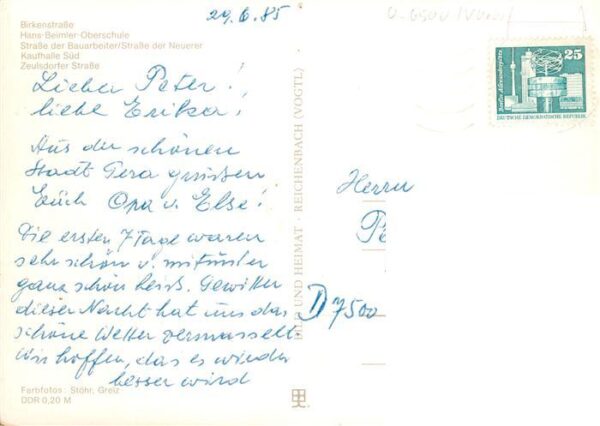 29.6.85
Birkenstraße
Hans-Beimler-Oberschule
Straße der Bauarbeiter/Straße der Neuerer
Kaufhalle Süd
Zeulsdorfer Straße
Lieber Peter!
liebe Erika!
Aus der schönen
Stadt Gera grüssen
Euch Opa u. Else!
Die ersten 7 Tage waren
sehr schön u. mitunter
ganz schön heiß. Gewitter
dieser Nacht hat uns das
schöne Wetter vermasselt
wir hoffen, das es wieder
besser wird
Farbfotos: Stöhr, Greiz
DDR 0,20 M
BILD UND HEIMAT · REICHENBACH (VOGTL)
25
Berlin-Alexanderplatz
DEUTSCHE DEMOKRATISCHE REPUBLIK
Herrn
Pe
D 7500